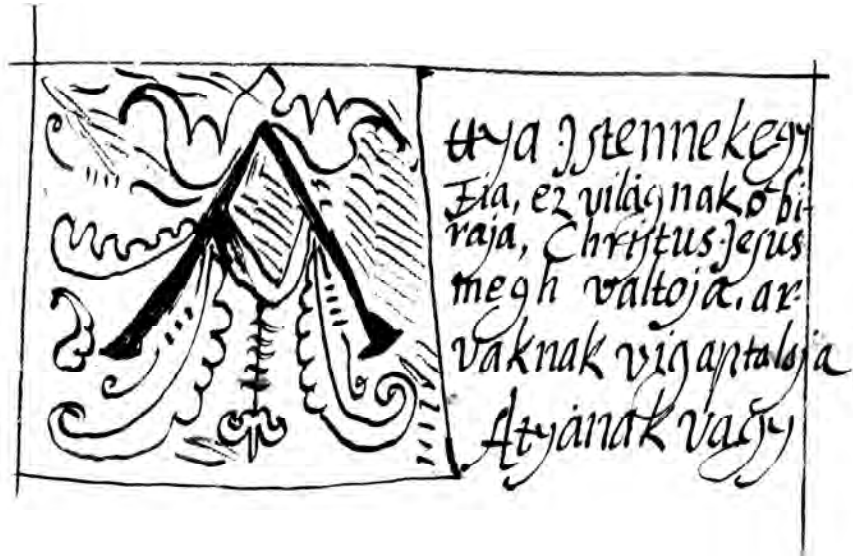 Attya Istennek egy
Fia, ez világnak ő bi-
raja, Christus Jesus
megh valtoja, ar-
vaknak vigasztaloja
Atyának vagy